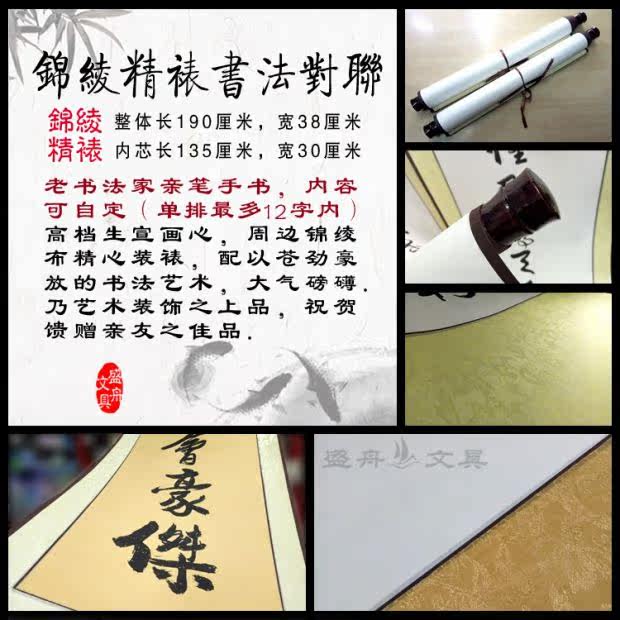 錦綾精裱書法對聯
錦綾
精裱
整体长190厘米，宽38厘米
内芯长135厘米，宽30厘米
老书法家亲笔手书，内容
可自定（单排最多12字内）
高档生宣画心，周边锦绫
布精心装裱，配以苍劲豪
放的书法艺术，大气磅礴.
乃艺术装饰之上品，祝贺
馈赠亲友之佳品.
盛舟
文具
豪
傑
盛舟 文具